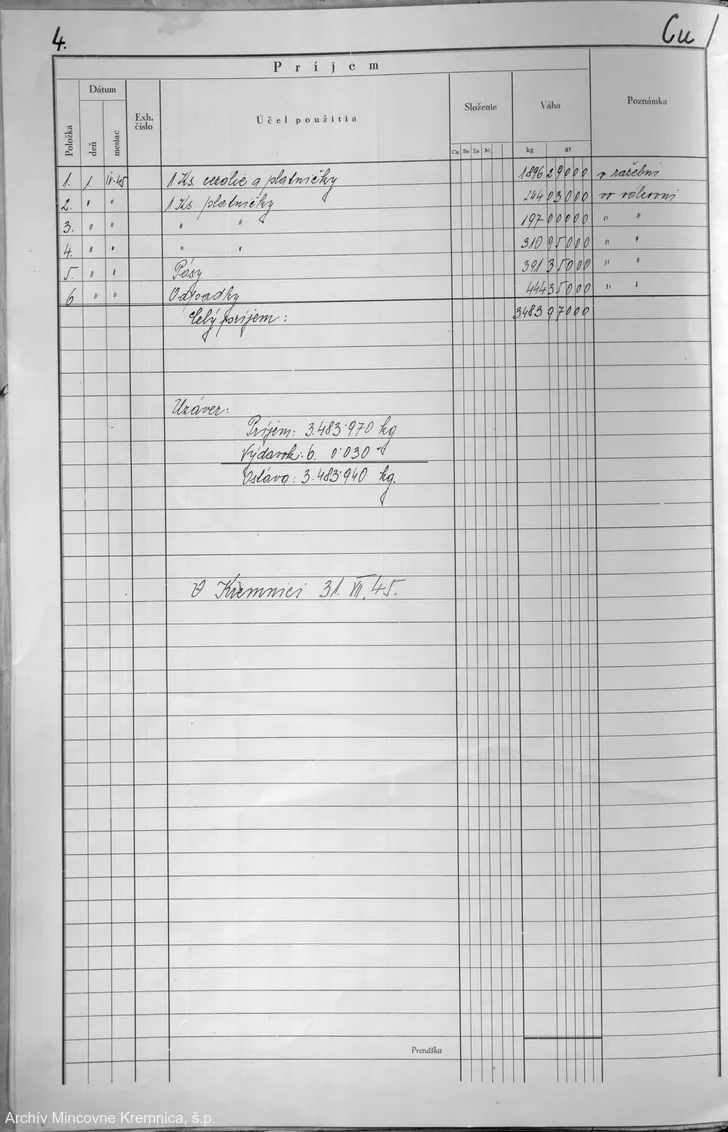 4.
Cu
Príjem
Položka
Dátum
deň
mesiac
Exh. číslo
Účel použitia
Složenie
Cu Sn Zn Ni
Váha
kg gr
Poznámka
1. 1. IV.45 1 Ks. a platničky 1896 29000 v razebni
2. " " 1 Ks platničky 244 03000 vo valcovni
3. " " " " 197 00000 " "
4. " " " " 310 95000 " "
5. " " Pásy 391 35000 " "
6 " " Odpadky 444 35000 " "
Celý príjem: 3483 97000
Uzáver:
Príjem: 3.483·970 kg
Výdavok: 0·030
Ostáva: 3.483·940 kg.
V Kremnici 31. VII. 45.
Prenáška
Archív Mincovne Kremnica, š.p.